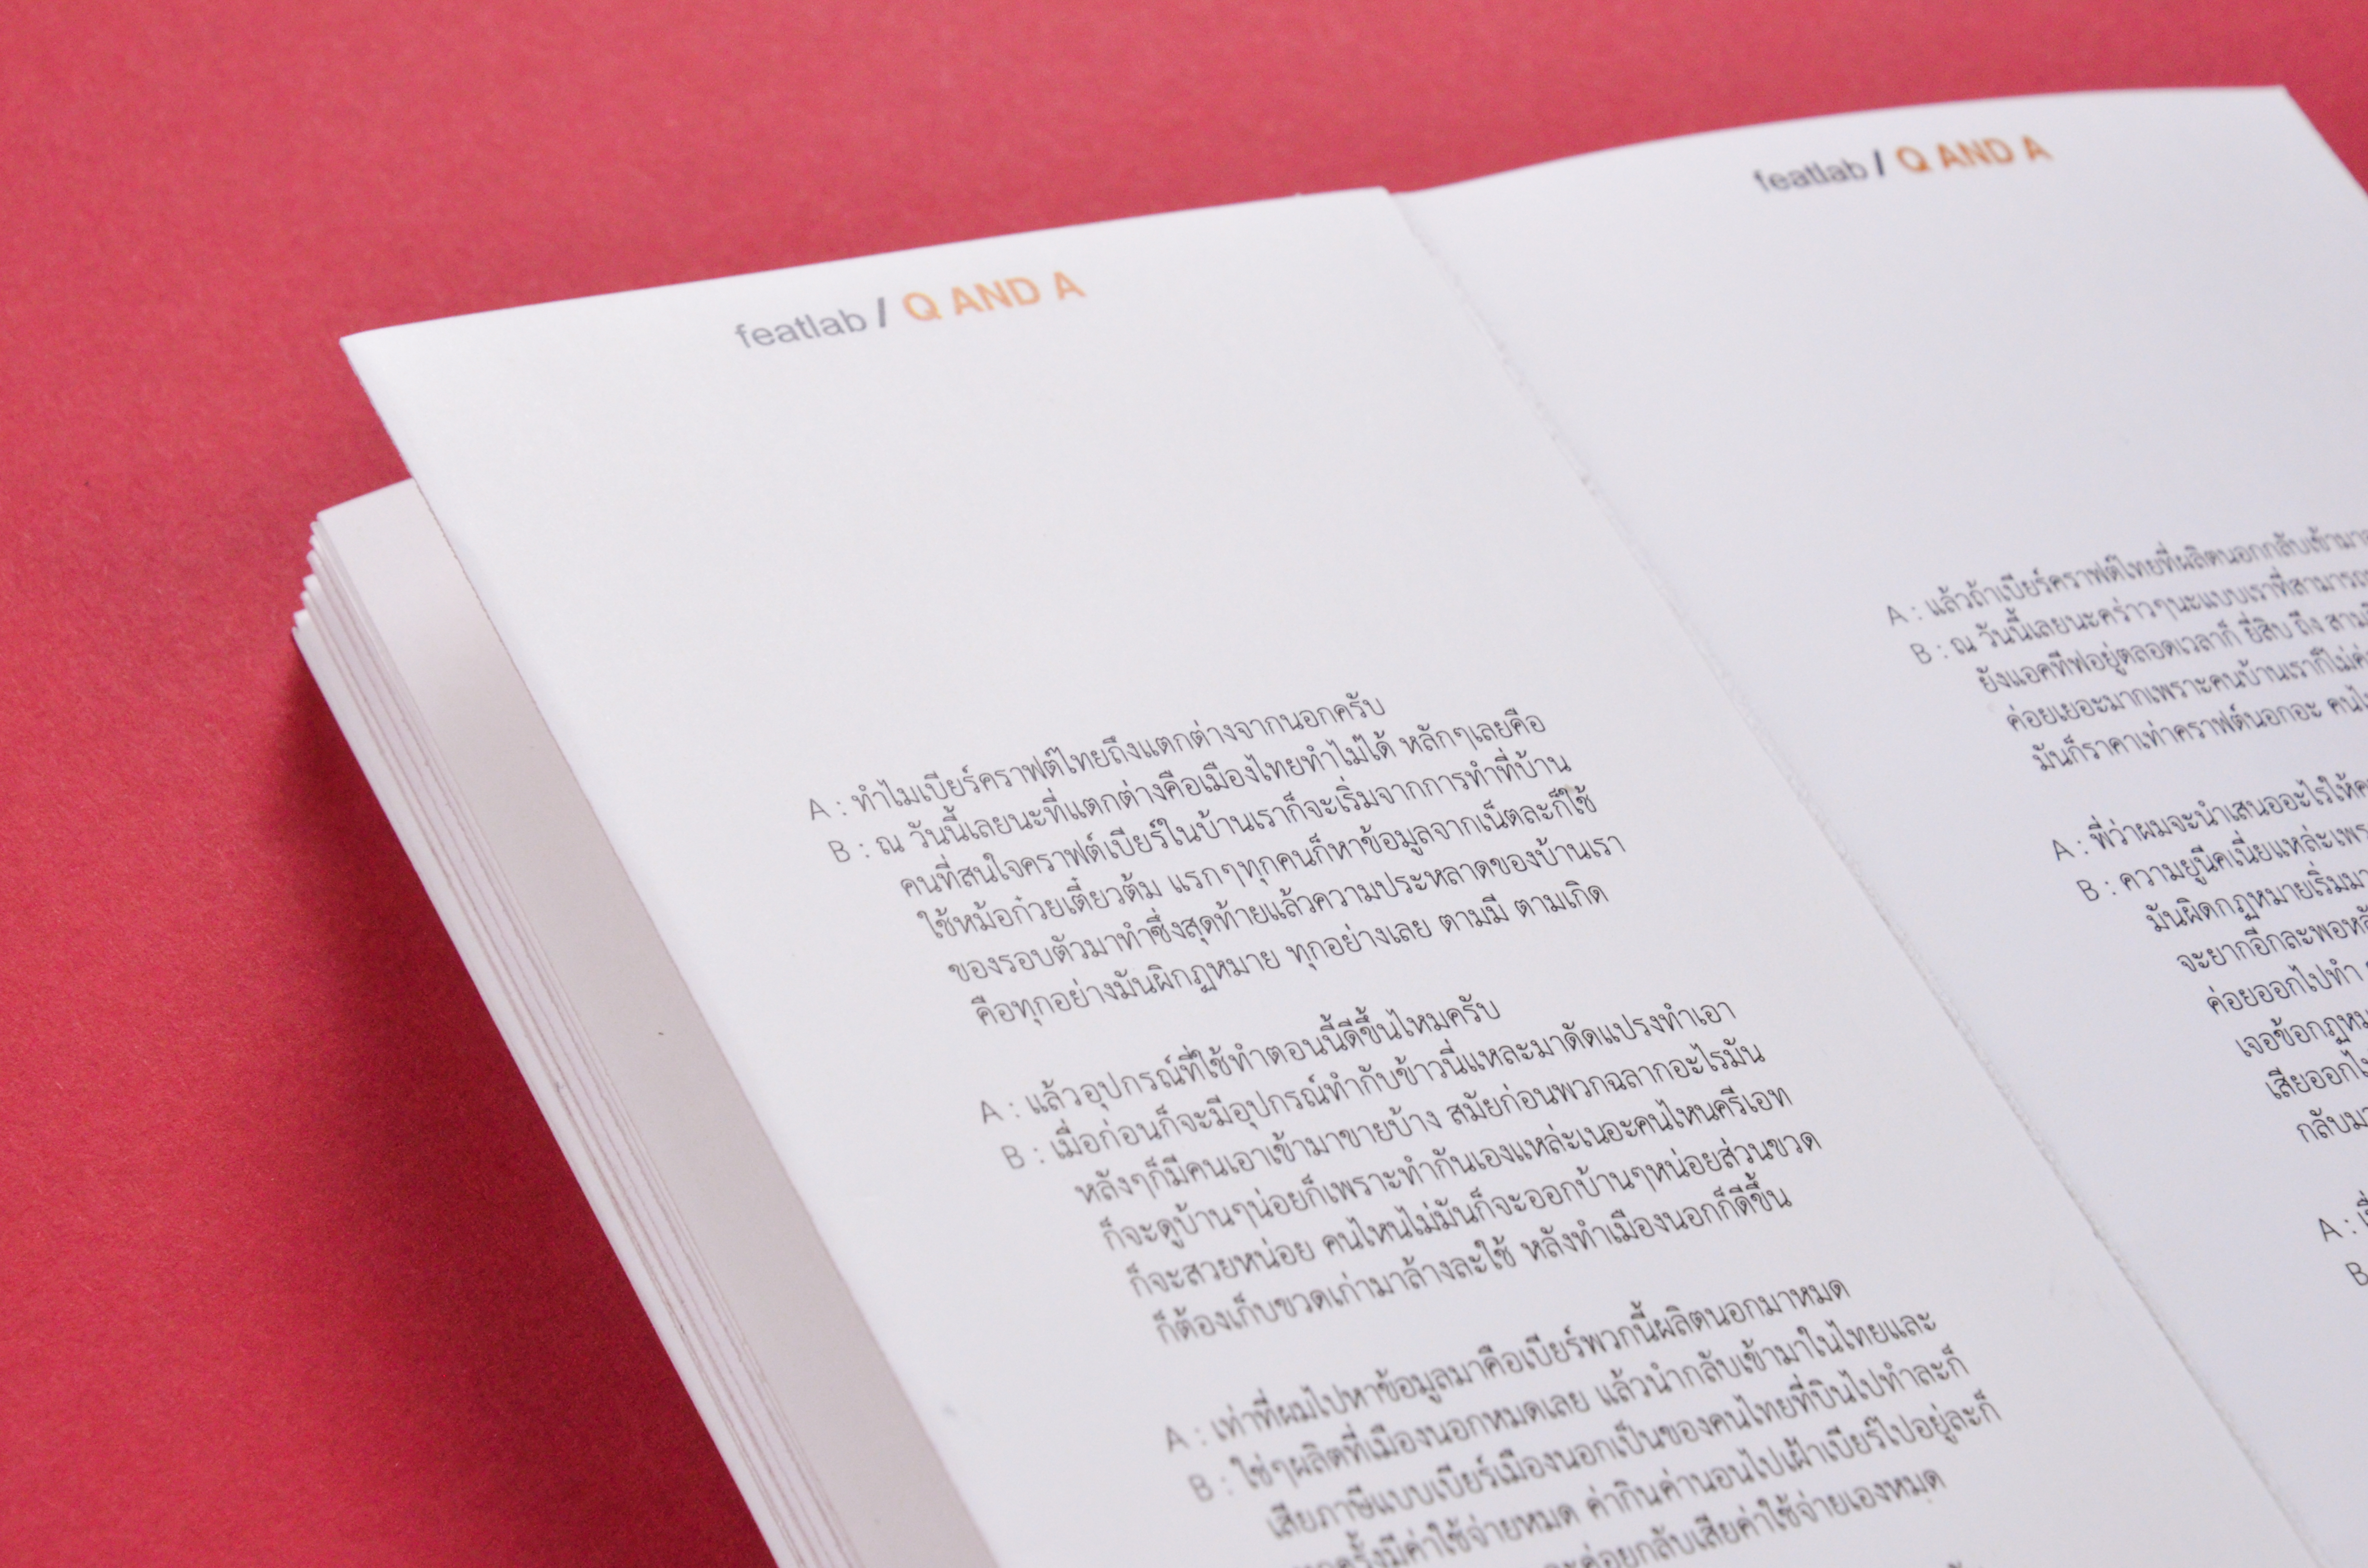 featlab / Q AND A
A : ทำไมเบียร์คราฟต์ไทยถึงแตกต่างจากนอกครับ
B : ณ วันนี้เลยนะที่แตกต่างคือเมืองไทยทำไม่ได้ หลักๆเลยคือ
คนที่สนใจคราฟต์เบียร์ในบ้านเราก็จะเริ่มจากการทำที่บ้าน
ใช้หม้อก๋วยเตี๋ยวต้ม แรกๆทุกคนก็หาข้อมูลจากเน็ตละก็ใช้
ของรอบตัวมาทำซึ่งสุดท้ายแล้วความประหลาดของบ้านเรา
คือทุกอย่างมันผิกฏหมาย ทุกอย่างเลย ตามมี ตามเกิด
A : แล้วอุปกรณ์ที่ใช้ทำตอนนี้ดีขึ้นไหมครับ
B : เมื่อก่อนก็จะมีอุปกรณ์ทำกับข้าวนี่แหละมาดัดแปรงทำเอา
หลังๆก็มีคนเอาเข้ามาขายบ้าง สมัยก่อนพวกฉลากอะไรมัน
ก็จะดูบ้านๆน่อยก็เพราะทำกันเองแหล่ะเนอะคนไหนครีเอท
ก็จะสวยหน่อย คนไหนไม่มันก็จะออกบ้านๆหน่อยส่วนขวด
ก็ต้องเก็บขวดเก่ามาล้างละใช้ หลังทำเมืองนอกก็ดีขึ้น
A : เท่าที่ผมไปหาข้อมูลมาคือเบียร์พวกนี้ผลิตนอกมาหมด
B : ใช่ๆผลิตที่เมืองนอกหมดเลย แล้วนำกลับเข้ามาในไทยและ
เสียภาษีแบบเบียร์เมืองนอกเป็นของคนไทยที่บินไปทำละก็
มีค่าใช้จ่ายหมด ค่ากินค่านอนไปเฝ้าเบียร์ไปอยู่ละก็
ค่อยกลับเสียค่าใช้จ่ายเองหมด
featlab / Q AND A
A : แล้วถ้าเบียร์คราฟต์ไทยที่ผลิตนอกกลับเข้ามา
B : ณ วันนี้เลยนะคร่าวๆนะแบบเราที่สามารถ
ยังแอคทีฟอยู่ตลอดเวลาก็ ยี่สิบ ถึง
ค่อยเยอะมากเพราะคนบ้านเราก็ไม่
มันก็ราคาเท่าคราฟต์นอกอะ
A : พี่ว่าผมจะนำเสนออะไรให้
B : ความยูนีคเนี่ยแหล่ะ
มันผิดกฏหมายเริ่ม
จะยากอีกละพอ
ค่อยออกไปทำ
เจอข้อ
เสียออก
กลับ
A :
B